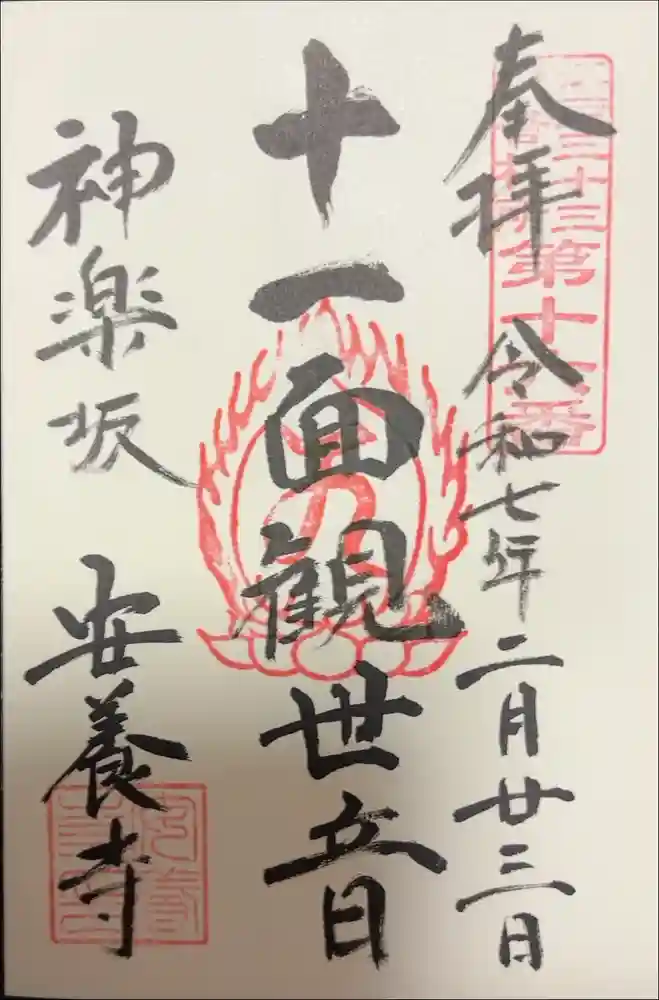 奉拝
令和七年二月廿三日
三十三
第十六番
十一面観世音
神楽坂
安養寺